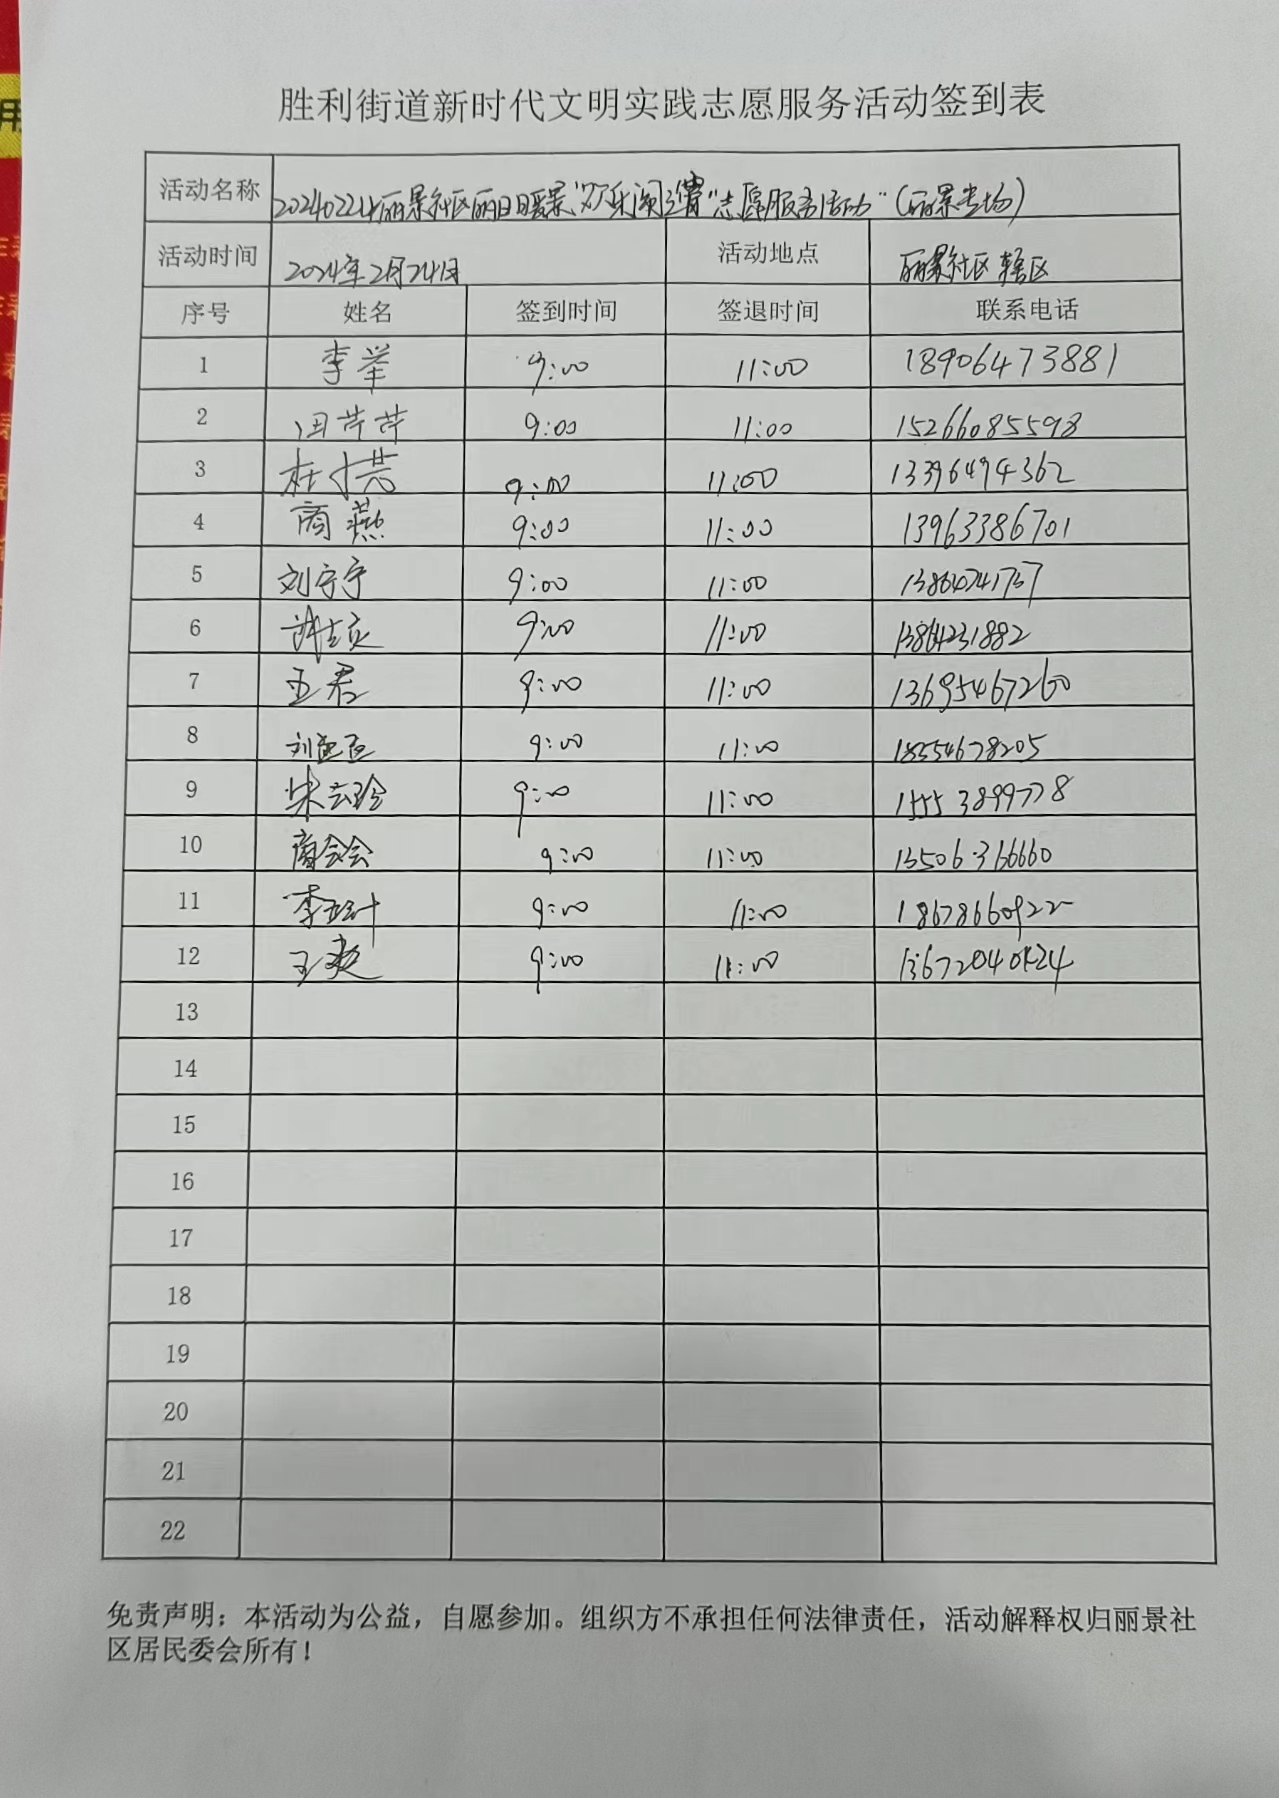 胜利街道新时代文明实践志愿服务活动签到表
活动名称 20240224丽景社区丽日暖景"欢乐闹元宵"志愿服务活动"(丽景专场)
活动时间 2024年2月24日 活动地点 丽景社区辖区
序号 姓名 签到时间 签退时间 联系电话
1 李举 9:00 11:00 18906473881
2 田芹芹 9:00 11:00 15266085598
3 杜 9:00 11:00 13396494362
4 商燕 9:00 11:00 13963386701
5 刘宁宁 9:00 11:00 13864241737
6 9:00 11:00 13864231882
7 王君 9:00 11:00 13695467260
8 刘 9:00 11:00 18554678205
9 宋云珍 9:00 11:00 15553899778
10 商会会 9:00 11:00 13506366660
11 李 9:00 11:00 18678660922
12 王爽 9:00 11:00
13
14
15
16
17
18
19
20
21
22
免责声明：本活动为公益，自愿参加。组织方不承担任何法律责任，活动解释权归丽景社
区居民委会所有！